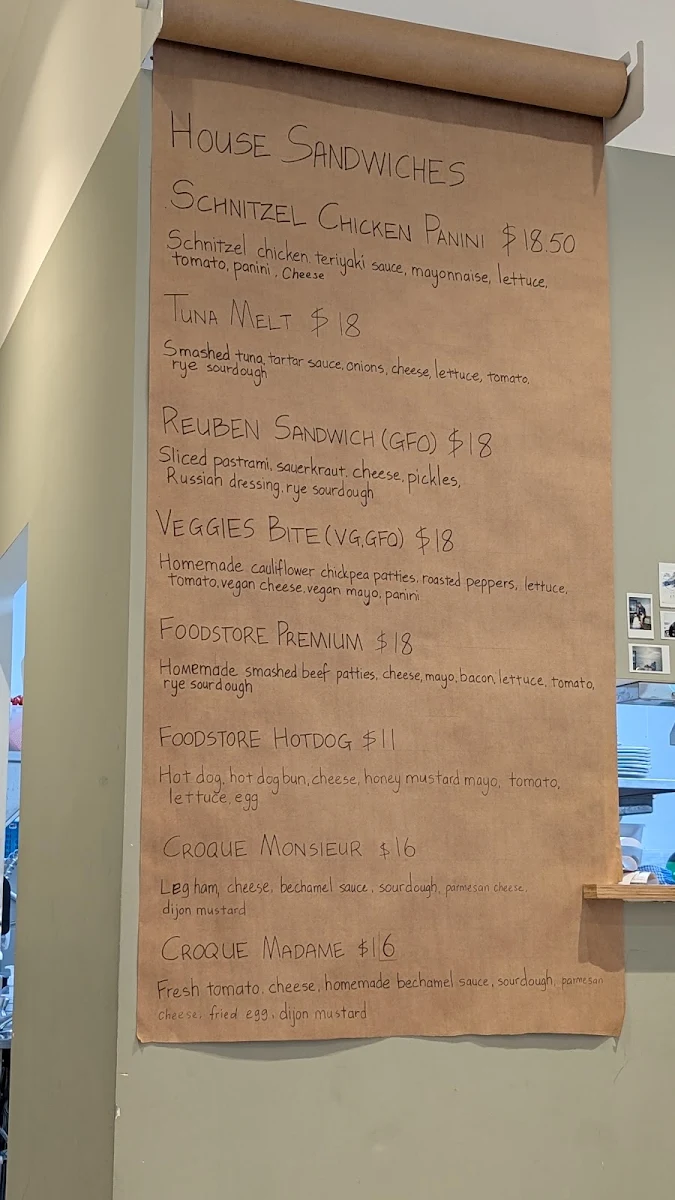 HOUSE SANDWICHES
SCHNITZEL CHICKEN PANINI $18.50
Schnitzel chicken, teriyaki sauce, mayonnaise, lettuce,
tomato, panini, Cheese
TUNA MELT $18
Smashed tuna, tartar sauce, onions, cheese, lettuce, tomato,
rye sourdough
REUBEN SANDWICH (GFO) $18
Sliced pastrami, sauerkraut, cheese, pickles,
Russian dressing, rye sourdough
VEGGIES BITE (VG, GFO) $18
Homemade cauliflower chickpea patties, roasted peppers, lettuce,
tomato, vegan cheese, vegan mayo, panini
FOODSTORE PREMIUM $18
Homemade smashed beef patties, cheese, mayo, bacon, lettuce, tomato,
rye sourdough
FOODSTORE HOTDOG $11
Hot dog, hot dog bun, cheese, honey mustard mayo, tomato,
lettuce, egg
CROQUE MONSIEUR $16
Leg ham, cheese, bechamel sauce, sourdough, parmesan cheese,
dijon mustard
CROQUE MADAME $16
Fresh tomato, cheese, homemade bechamel sauce, sourdough, parmesan
cheese, fried egg, dijon mustard